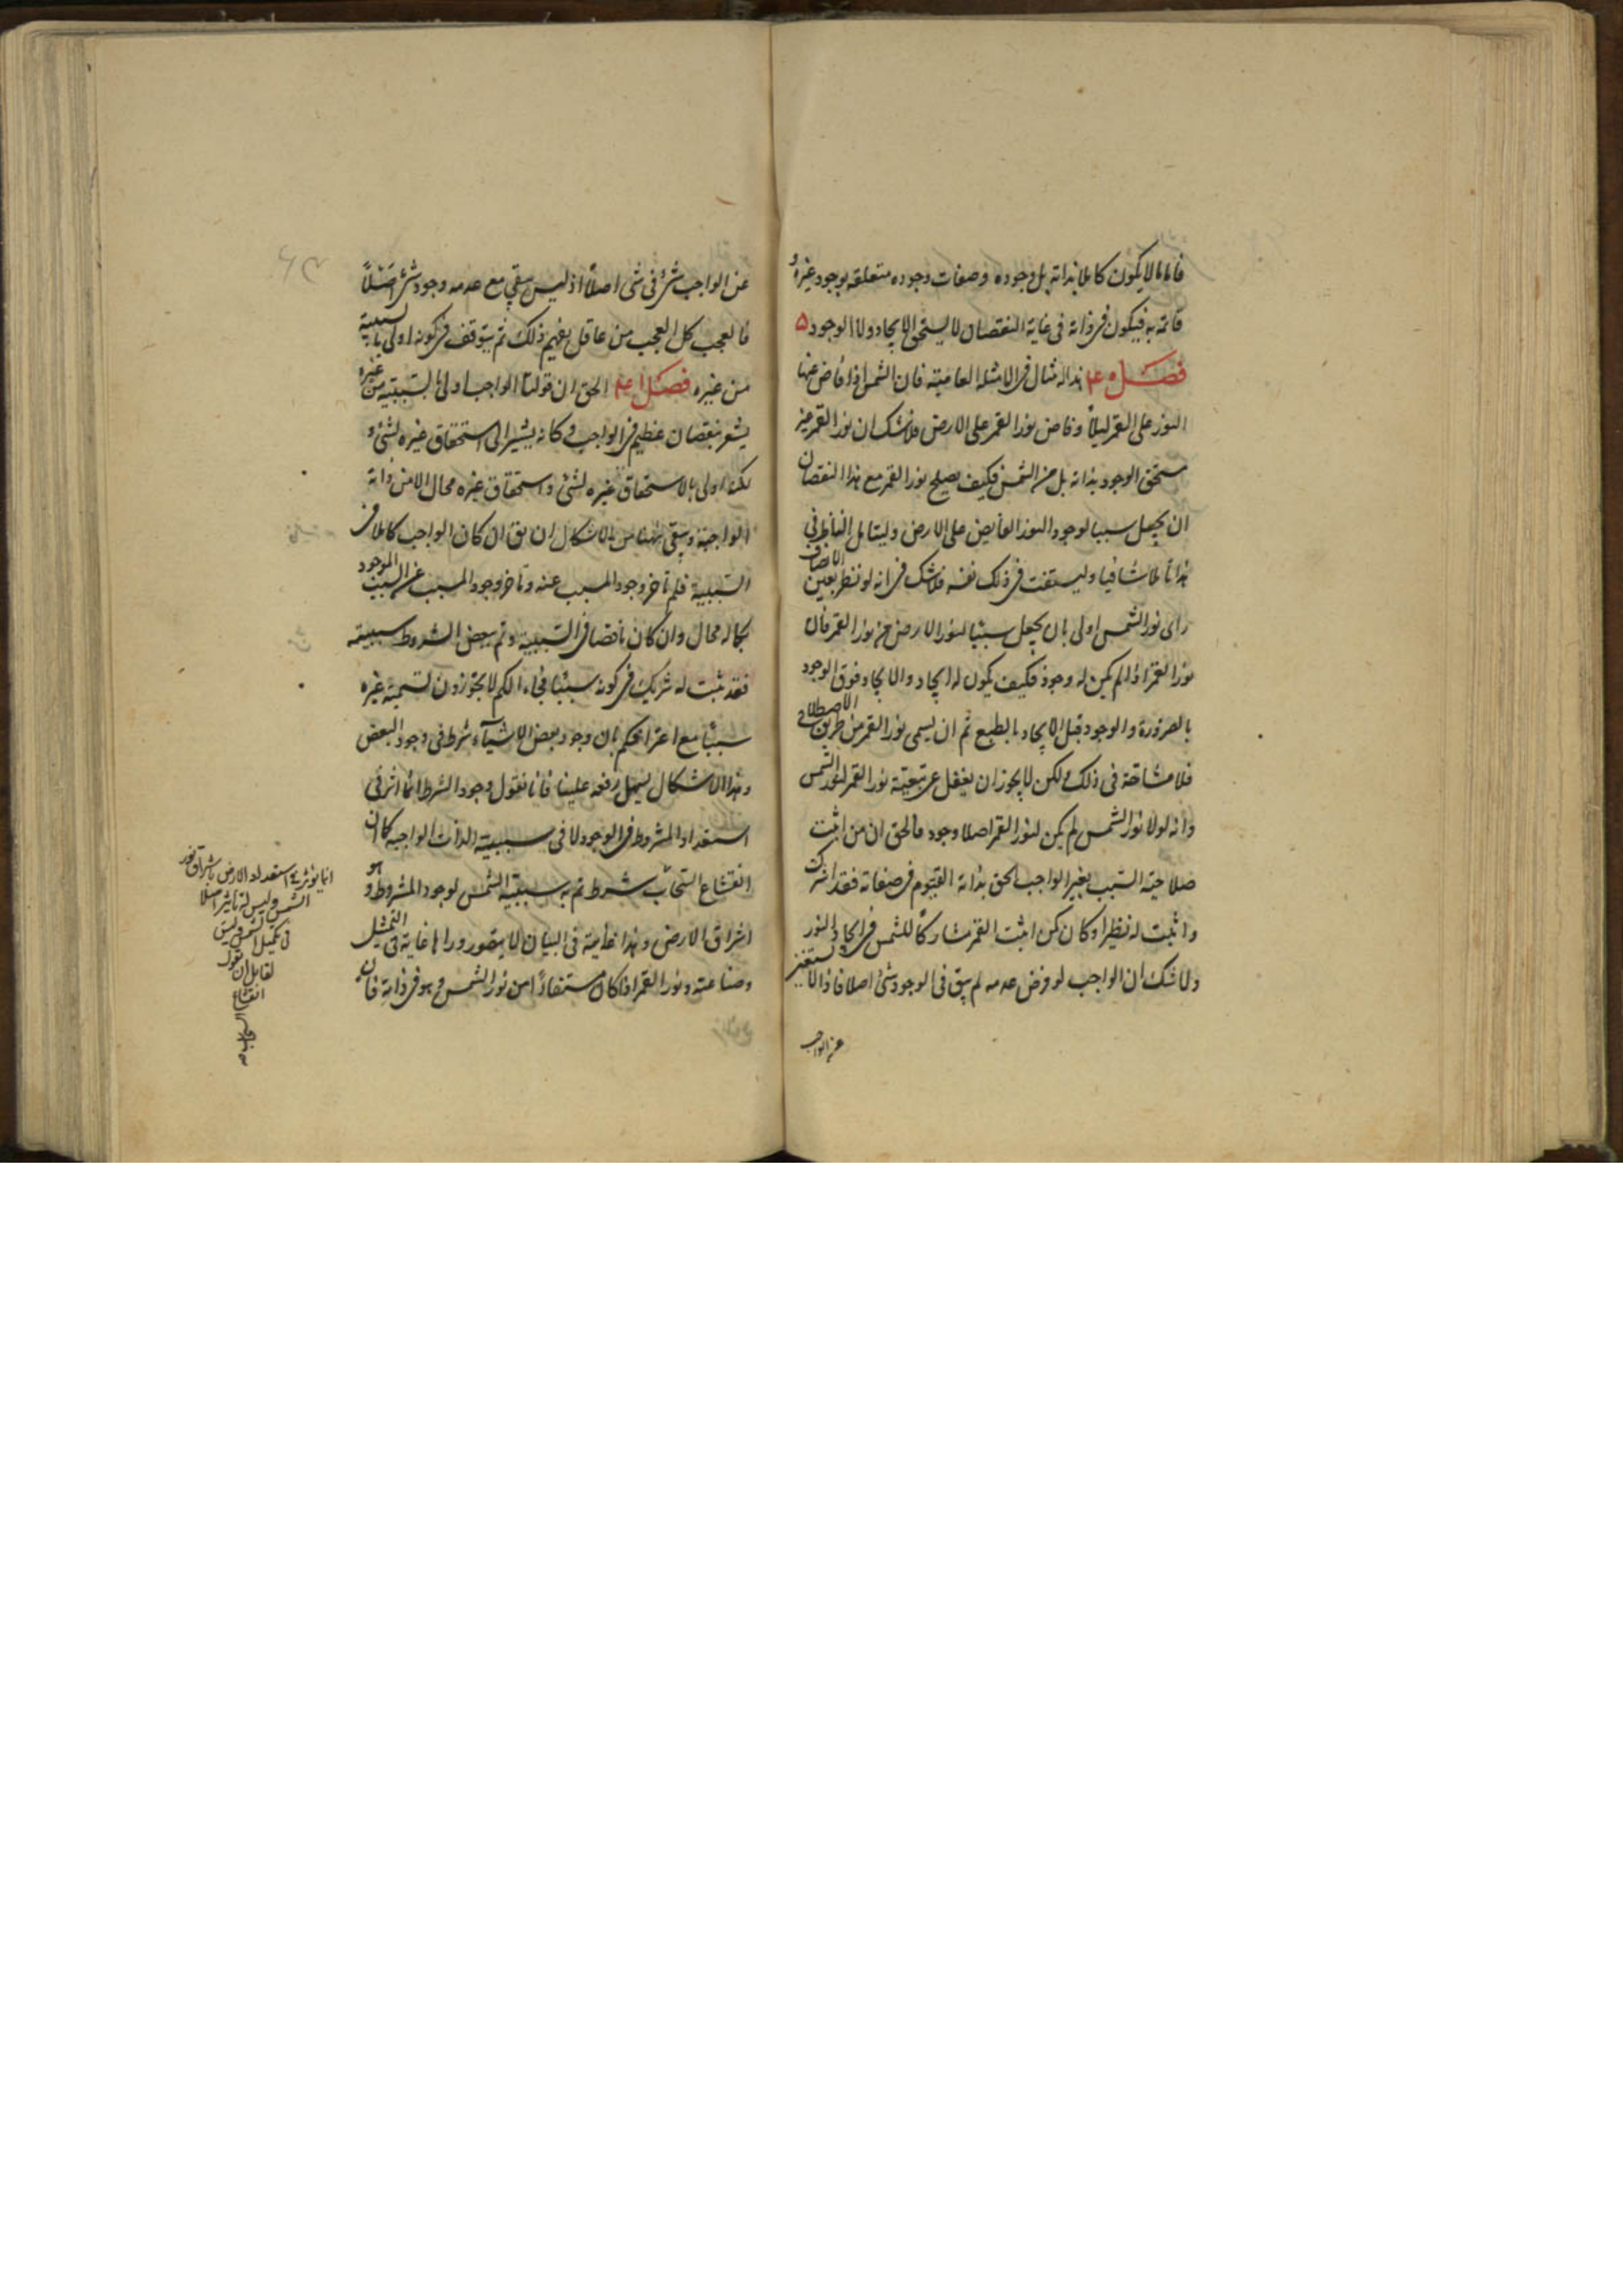 فاما ما لا يكون كاملا بذاته بل وجوده وصفات وجوده متعلقه بوجود غيره و
قائمة به فيكون فى ذاته فى غاية النقصان لا يستحق الايجاد ولا الوجود ۵
فصــل هذا له مثال فى الامثله العامية فان الشمس اذا فاض عنها
النور على القمر ليلاً وفاض نور القمر على الارض فلا شك ان نور القمر غير
مستحق الوجود بذاته بل من الشمس فكيف يصلح نور القمر مع هذا النقصان
ان يجعل سببا لوجود النور الفايض على الارض وليتامل الناظر فى
هذا تاملا شافيا وليستفت فى ذلك نفسه فلا شك فى انه لو نظر بعين الانصاف
راى نور الشمس اولى بان يجعل سببًا لنور الارض من نور القمر فان
نور القمر اذا لم يكن له وجود فكيف يكون له ايجاد والايجاد فوق الوجود
بالضرورة والوجود قبل الايجاد بالطبع ثم ان يسمى نور القمر من طريق الاصطلاح
فلا مشاحة فى ذلك ولكن لا يجوز ان يغفل عن تبعية نور القمر لنور الشمس
وانه لولا نور الشمس لم يكن لنور القمر اصلا وجود فالحق ان من اثبت
صلاحية السبب لغير الواجب الحق بذاته القيوم فى صفاته فقد اشرك
واثبت له نظيرا وكان كمن اثبت القمر مشاركاً للشمس فى ايجاد النور
ولا شك ان الواجب لو فرض عدمه لم يبق فى الوجود شئ اصلا فاذا لا يستغنى
عن الواجب
عن الواجب شئ فى شئ اصلاً اذ ليس يبقى مع عدمه وجود شئ اصلاً
فالعجب كل العجب من عاقل يفهم ذلك ثم يتوقف فى كونه اولى بالسببية
من غيره فصــل الحق ان قولنا الواجب اولى بالسببية من غيره
يشعر بنقصان عظيم فى الواجب وكانه يشير الى استحقاق غيره لشئ و
لكنه اولى بالاستحقاق غيره لشئ واستحقاق غيره محال الا من ذاته
الواجبة وبقى ههنا من الاشكال ان يق ان كان الواجب كاملا فى
السببية فلم تاخر وجود المسبب عنه وتاخر وجود المسبب عن السبب الموجود
بكماله محال وان كان ناقصا فى السببية وتم ببعض الشروط سببيته
فقد ثبت له شريك فى كونه سببًا فما بالكم لا تجوزون تسمية غيره
سببًا مع اعترافكم بان وجود بعض الاشياء شرط فى وجود البعض
وهذا الاشكال يسهل رفعه علينا فانا نقول وجود الشرط انما اثر فى
استعداد المشروط فى الوجود لا فى سببية الذات الواجبه كما ان
انقشاع السحاب شرط تم به سببية الشمس لوجود المشروط و هو
اشراق الارض وهذا غاية فى البيان لا يتصور وراها غاية فى التمثيل
وصناعته ونور القمر اذا كان مستفاداً من نور الشمس وهو فى ذاته فان
انما يؤثر فى استعداد الارض باشراق نور
الشمس وليس له تاثير اصلا
فى تكميل الشمس وليس
لقائل ان يقول
انقشاع
السحاب